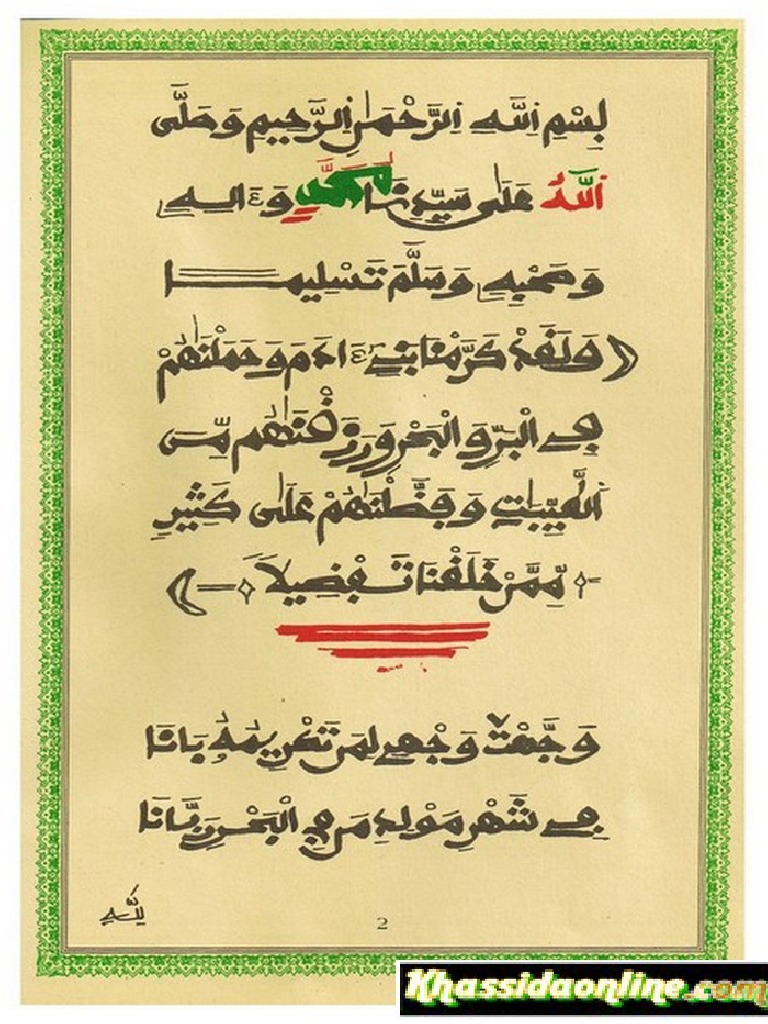 بِسْمِ اِ۬للَّهِ اِ۬لرَّحْمَٰنِ اِ۬لرَّحِيمِ وَصَلَّى
اَ۬للَّهُ عَلَى سَيِّدِنَا مُحَمَّدٍ وَءَالِهِ
وَصَحْبِهِ وَسَلَّمَ تَسْلِيمًا
(وَلَقَدْ كَرَّمْنَا بَنِي ءَادَمَ وَحَمَلْنَٰهُمْ
فِي الْبَرِّ وَالْبَحْرِ وَرَزَقْنَٰهُم مِّنَ
اَ۬لطَّيِّبَٰتِ وَفَضَّلْنَٰهُمْ عَلَى كَثِيرٍ
مِّمَّنْ خَلَقْنَا تَفْضِيلًا)
وَجَّهْتُ وَجْهِي لِمَن تَكْرِيمُهُ بَانَا
فِي شَهْرِ مَوْلِدِ مَن فِي الْبَحْرِ رَبَّانَا
2
Khassidaonline.com